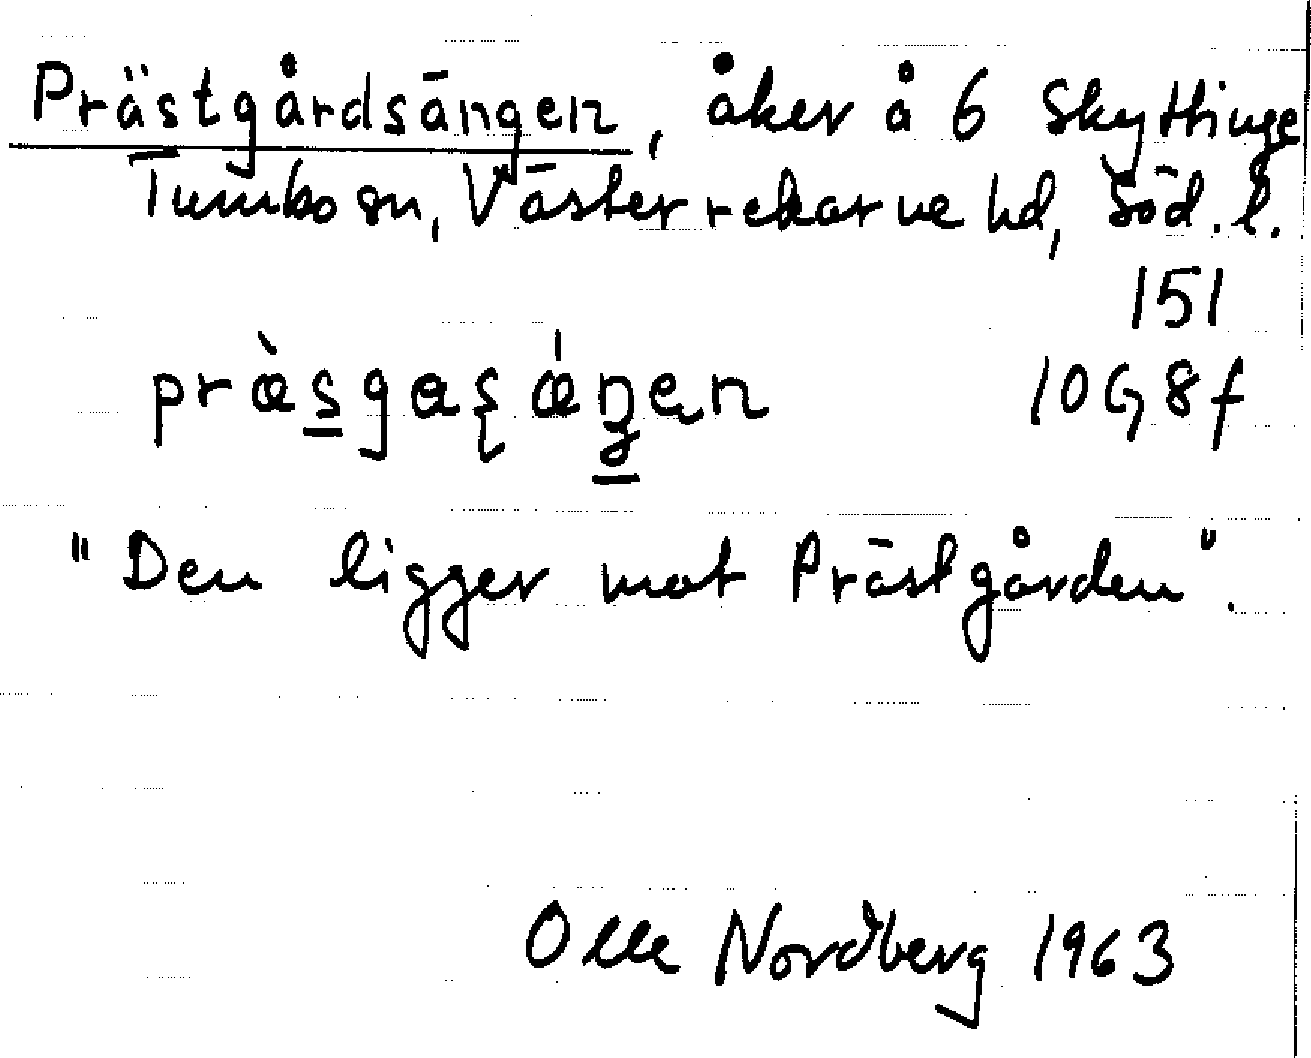 Prästgårdsängen, åker å 6 Skyttinge
Tumbo sn, Västerrekarne hd, Söd. l.
151
præ̀sgasǽŋen 10G8f
"Den ligger mot Prästgården".
Olle Nordberg 1963